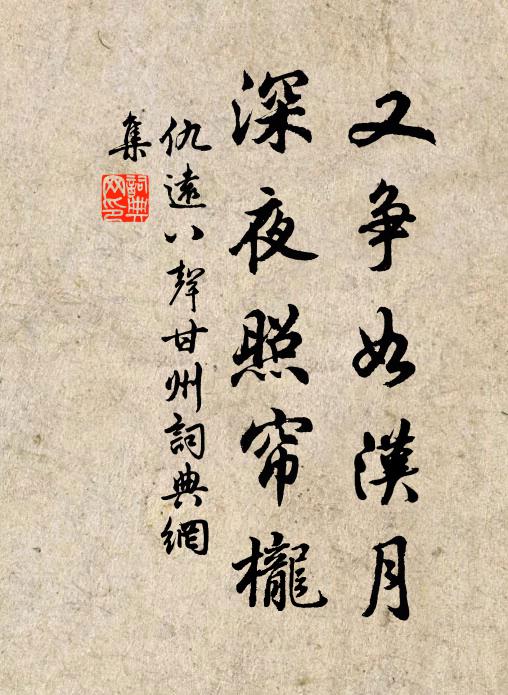 又争如漢月
深夜照帘櫳
仇遠八聲甘州詞典網
集
詞典
网印